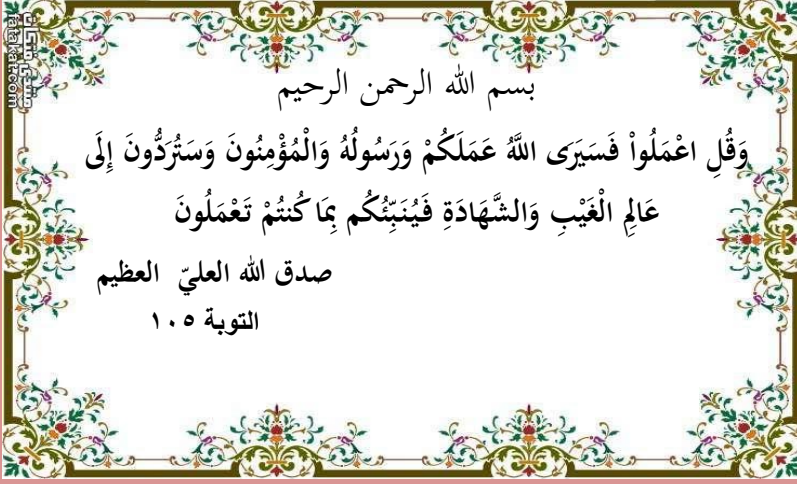 بسم الله الرحمن الرحيم
وَقُلِ اعْمَلُواْ فَسَيَرَى اللَّهُ عَمَلَكُمْ وَرَسُولُهُ وَالْمُؤْمِنُونَ وَسَتُرَدُّونَ إِلَى
عَالِمِ الْغَيْبِ وَالشَّهَادَةِ فَيُنَبِّئُكُم بِمَا كُنتُمْ تَعْمَلُونَ
صدق الله العليّ العظيم
التوبة ١٠٥